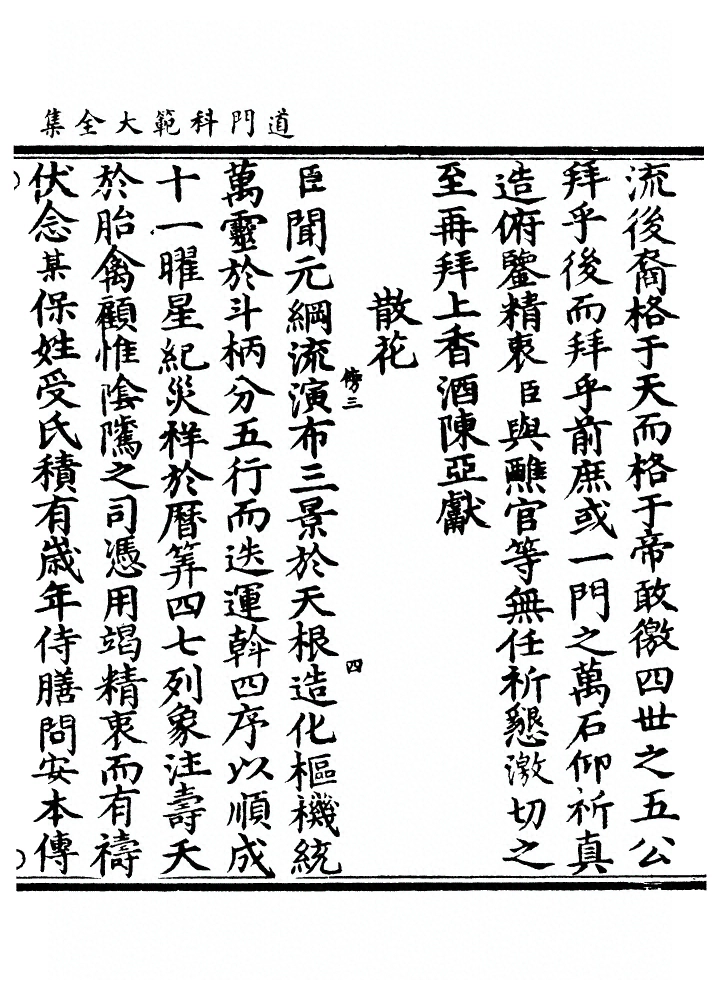 道門科範大全集
流後裔格于天而格于帝敢徼四世之五公
拜乎後而拜乎前庶或一門之萬石仰祈真
造俯鑒精衷臣與醮官等無任祈懇激切之
至再拜上香酒陳亞獻
散花
傍三 四
臣聞元綱流演布三景於天根造化樞機統
萬靈於斗柄分五行而迭運斡四序以順成
十一曜星紀災祥於曆筭四七列象注壽夭
於胎禽顧惟陰騭之司憑用竭精衷而有禱
伏念某保姓受氏積有歲年侍膳問安本傳